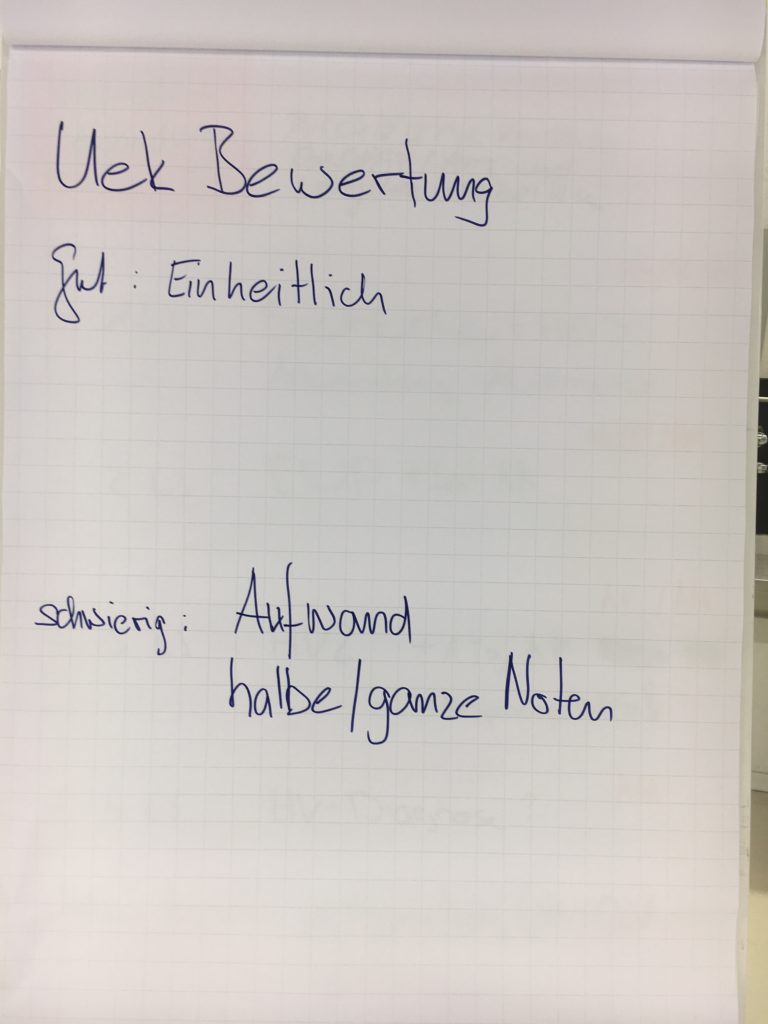 Uek Bewertung
gut : Einheitlich
schwierig : Aufwand
halbe/ganze Noten